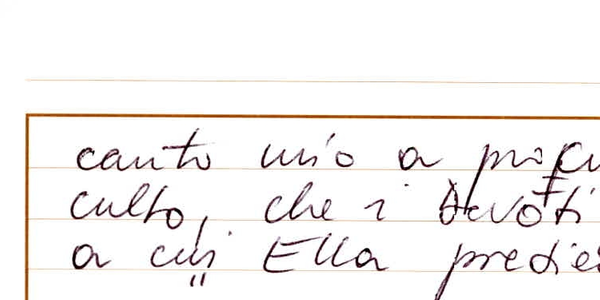 canto mio a
culto, che i devoti
a cui Ella